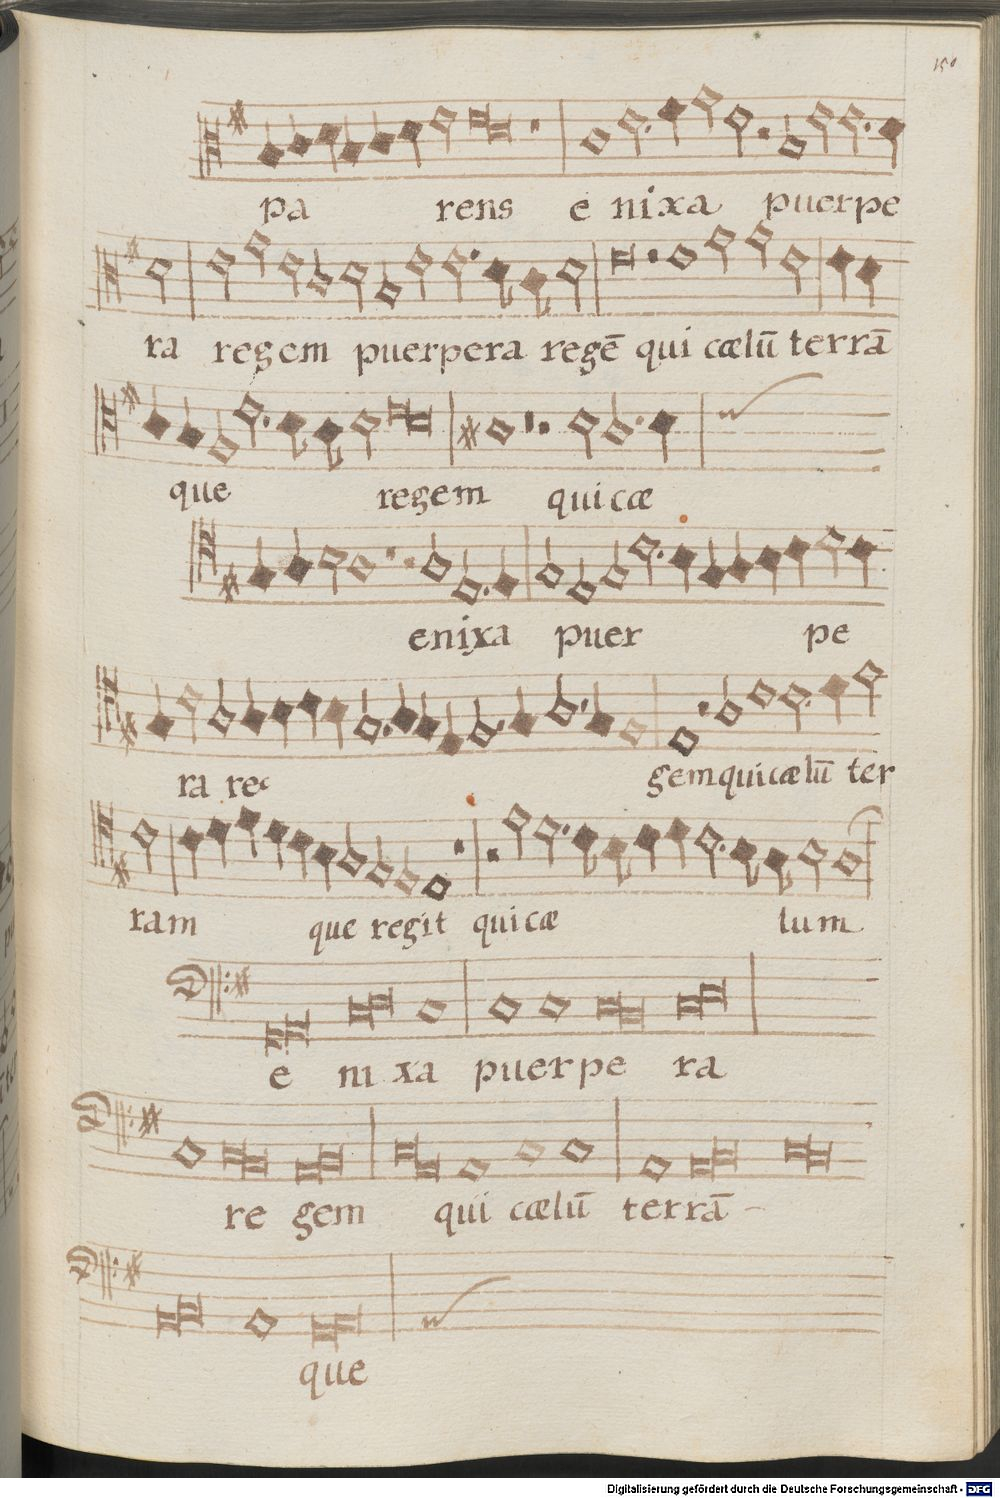 150
pa rens e nixa puerpe
ra regem puerpera regē qui cælū terrā
que regem qui cæ
enixa puer pe
ra reg
gem qui cælū ter
ram que regit qui cæ lum
e ni xa puerpe ra
re gem qui cælū terrā
que
Digitalisierung gefördert durch die Deutsche Forschungsgemeinschaft - DFG